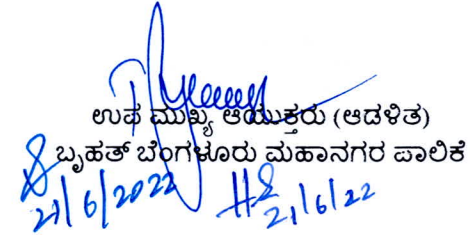 ಉಪ ಮುಖ್ಯ ಆಯುಕ್ತರು (ಆಡಳಿತ)
ಬೃಹತ್ ಬೆಂಗಳೂರು ಮಹಾನಗರ ಪಾಲಿಕೆ
21/6/2022
21/6/22